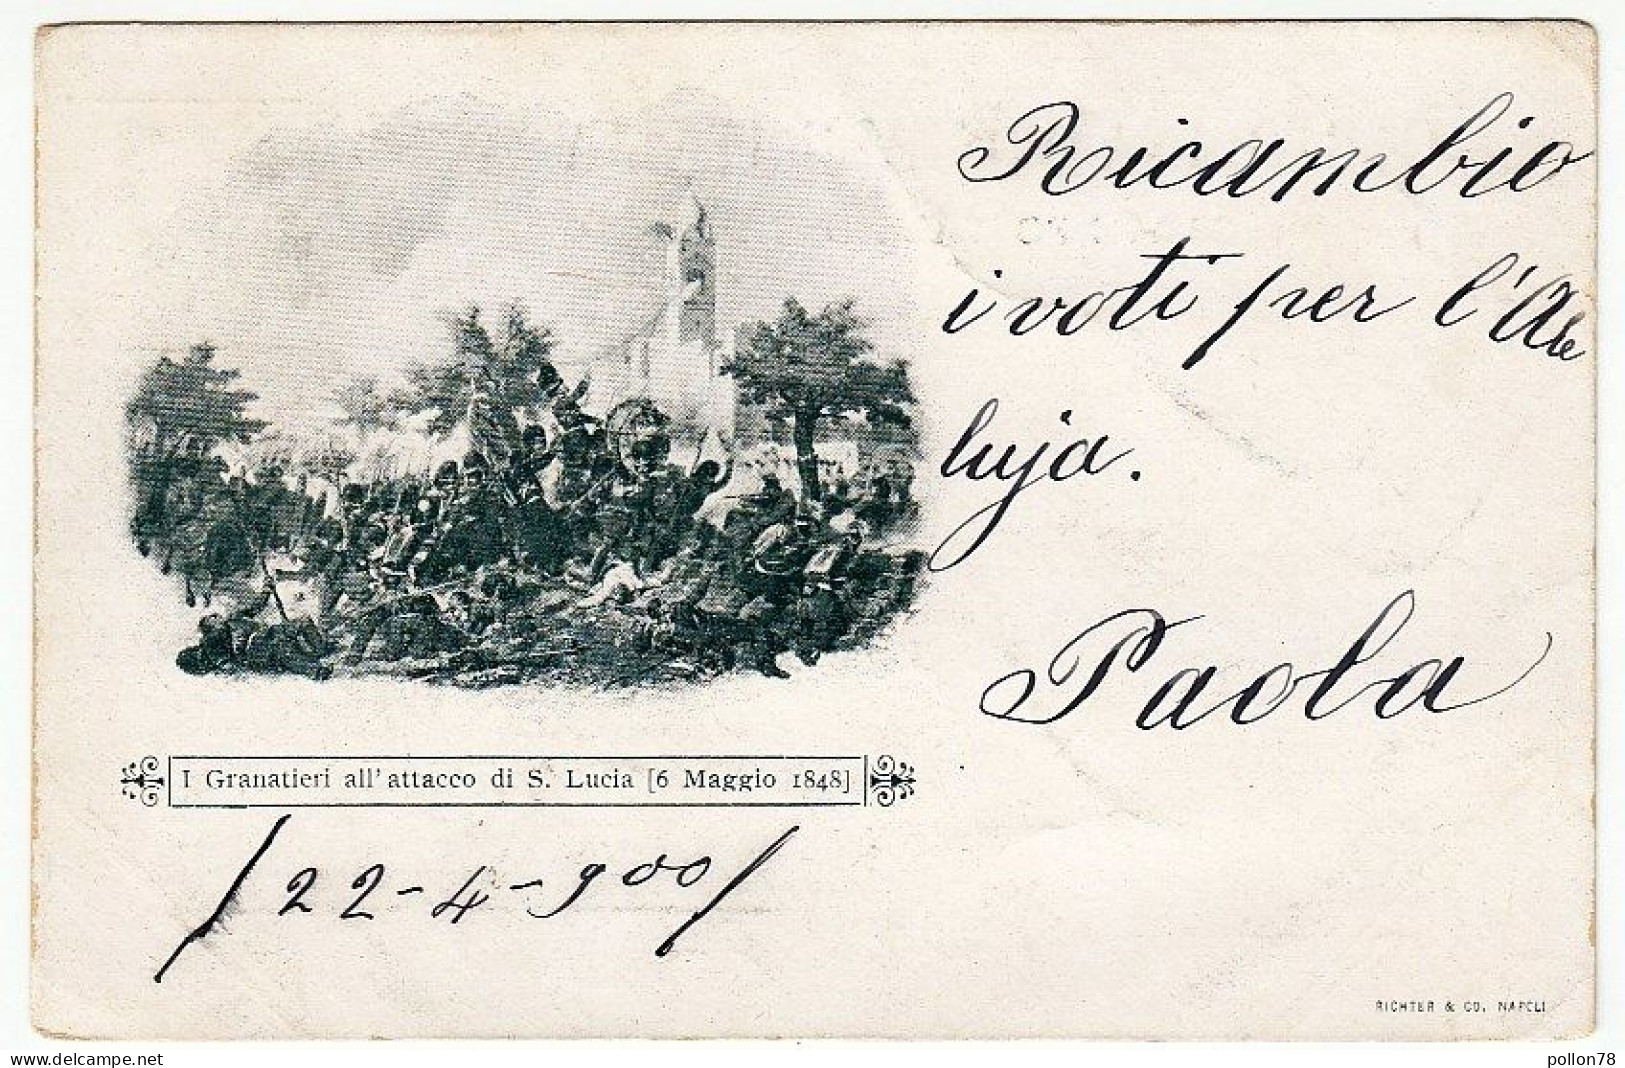 Ricambio
i voti per l'Ale
luja.
Paola
I Granatieri all'attacco di S. Lucia [6 Maggio 1848]
/22-4-900/
RICHTER & CO. NAPOLI
www.delcampe.net
pollon78